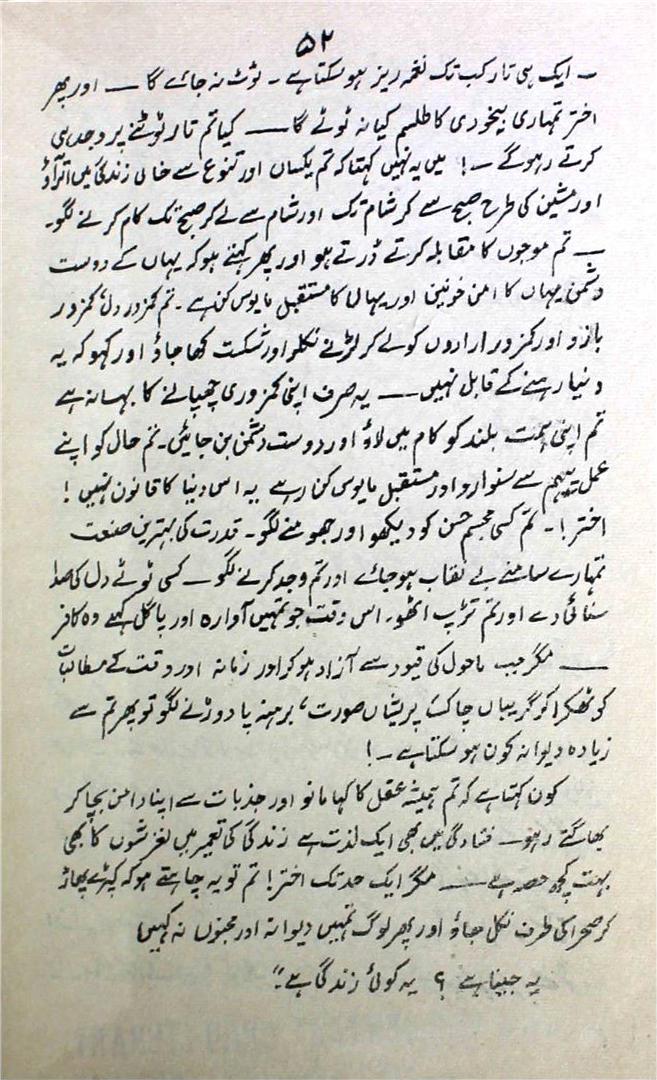 ۵۲
— ایک ہی تار کب تک نغمہ ریز ہو سکتا ہے ۔ ٹوٹ نہ جائے گا — اور پھر
اختر تمہاری بیخودی کا طلسم کیا نہ ٹوٹے گا — کیا تم تار ٹوٹنے پر وجد ہی
کرتے رہو گے —! میں یہ نہیں کہتا کہ تم یکساں اور تنوع سے خالی زندگی میں اتر آؤ
اور مشین کی طرح صبح سے لے کر شام تک اور شام سے لے کر صبح تک کام کرنے لگو۔
— تم موجوں کا مقابلہ کرتے ڈرتے ہو اور پھر کہتے ہو کہ یہاں کے دوست
دشمن یہاں کا امن خونین اور یہاں کا مستقبل مایوس کن ہے ۔ تم کمزور دل، کمزور
بازو اور کمزور ارادوں کو لے کر لڑنے نکلو اور شکست کھا جاؤ اور کہو کہ یہ
دنیا رہنے کے قابل نہیں — یہ صرف اپنی کمزوری چھپانے کا بہانہ ہے
تم اپنی ہمت بلند کو کام میں لاؤ اور دوست دشمن بن جائیں۔ تم حال کو اپنے
عمل پیہم سے سنوارو اور مستقبل مایوس کن رہے یہ اس دنیا کا قانون نہیں !
اختر !۔ تم کسی مجسم حسن کو دیکھو اور جھومنے لگو۔ قدرت کی بہترین صنعت
تمہارے سامنے بے نقاب ہو جائے اور تم وجد کرنے لگو — کسی ٹوٹے دل کی صدا
سنائی دے اور تم تڑپ اٹھو۔ اس وقت جو تمہیں آوارہ اور پاگل کہے وہ کافر
— مگر جب ماحول کی قیود سے آزاد ہو کر اور زمانہ اور وقت کے مطالبات
کو ٹھکرا کر گریباں چاک، پریشاں صورت، برہنہ پا دوڑنے لگو تو پھر تم سے
زیادہ دیوانہ کون ہو سکتا ہے —!
کون کہتا ہے کہ تم ہمیشہ عقل کا کہا مانو اور جذبات سے اپنا دامن بچا کر
بھاگتے رہو — فتادگی میں بھی ایک لذت ہے زندگی کی تعمیر میں لغزشوں کا بھی
بہت کچھ حصہ ہے — مگر ایک حد تک اختر! تم تو یہ چاہتے ہو کہ کپڑے پھاڑ
کر صحرا کی طرف نکل جاؤ اور پھر لوگ تمہیں دیوانہ اور مجنوں نہ کہیں
یہ جینا ہے ؟ یہ کوئی زندگی ہے۔"